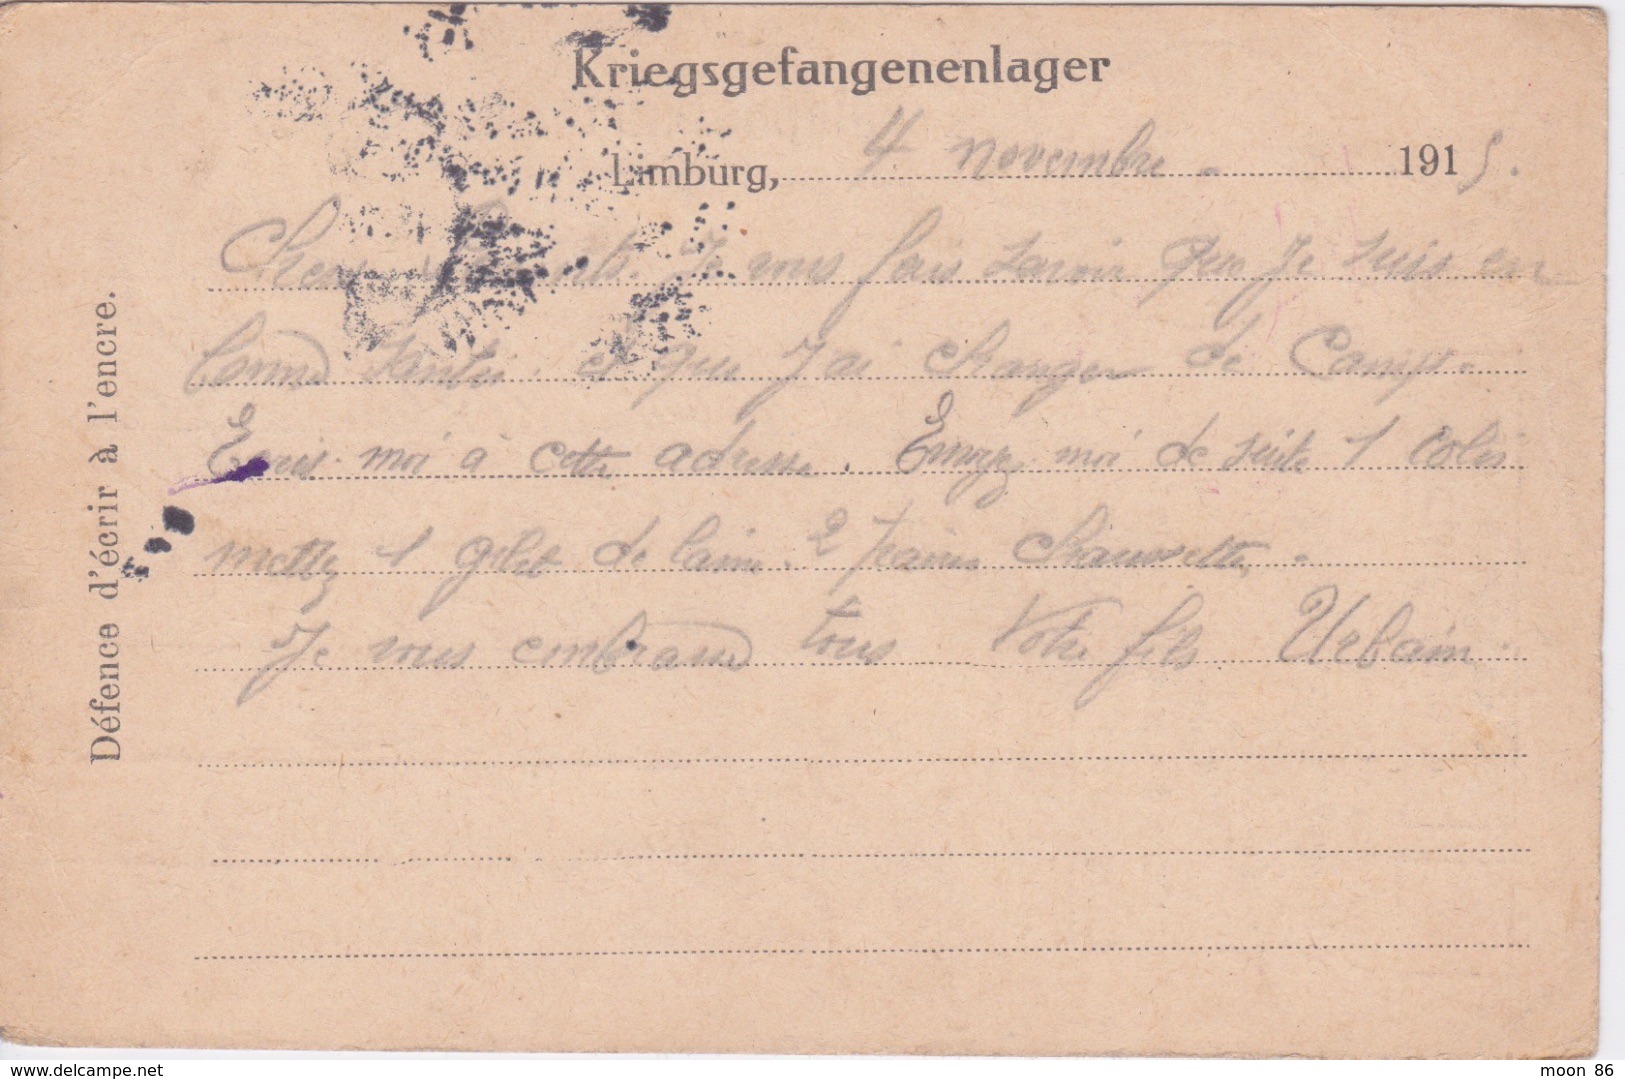 Kriegsgefangenenlager
Limburg, 4 novembre 1915.
Chers Parents. Je vous fais savoir que Je suis en
bonne Santée. et que J'ai changer de Camp.
Ecris moi à cette adresse. Envoyez moi de suite 1 Colis
mettez 1 gilet de laine. 2 paires chaussettes.
Je vous embrasse tous Votre fils Urbain.
Défence d'écrir à l'encre.
moon 86
www.delcampe.net